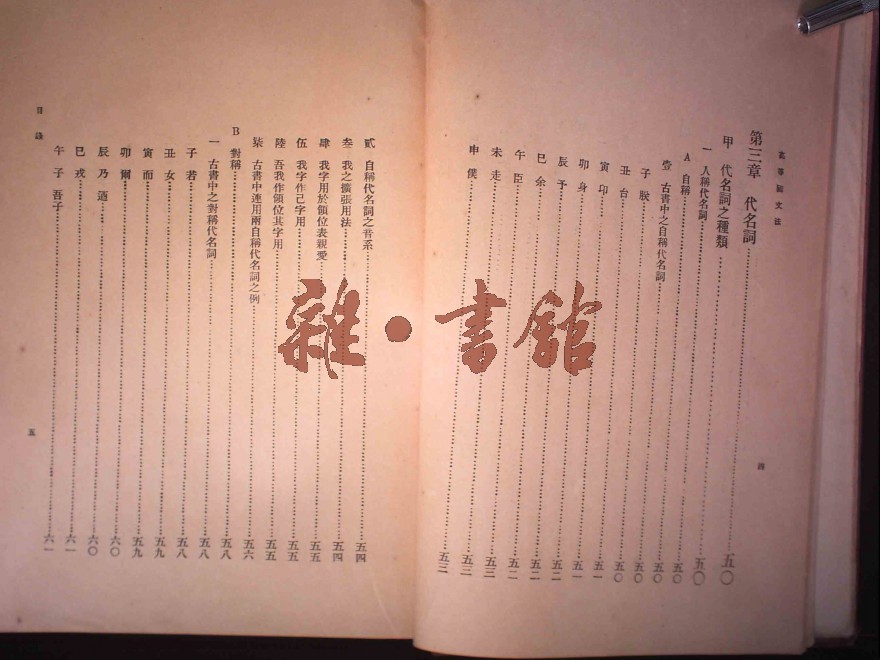 高等國文法
第三章　代名詞……五〇
甲　代名詞之種類……五〇
一　人稱代名詞……五〇
A　自稱……五〇
壹　古書中之自稱代名詞……五〇
子　朕……五〇
丑　台……五〇
寅　卬……五一
卯　身……五一
辰　予……五二
巳　余……五二
午　臣……五二
未　走……五三
申　僕……五三
四
貳　自稱代名詞之音系……五四
叁　我之擴張用法……五四
肆　我字用於領位表親愛……五五
伍　我字作己字用……五五
陸　吾我作領位其字用……五五
柒　古書中連用兩自稱代名詞之例……五六
B　對稱……五八
一　古書中之對稱代名詞……五八
子　若……五八
丑　女……五九
寅　而……五九
卯　爾……六〇
辰　乃　迺……六〇
巳　戎……六一
午　子　吾子……六一
目錄
五
雜·書館